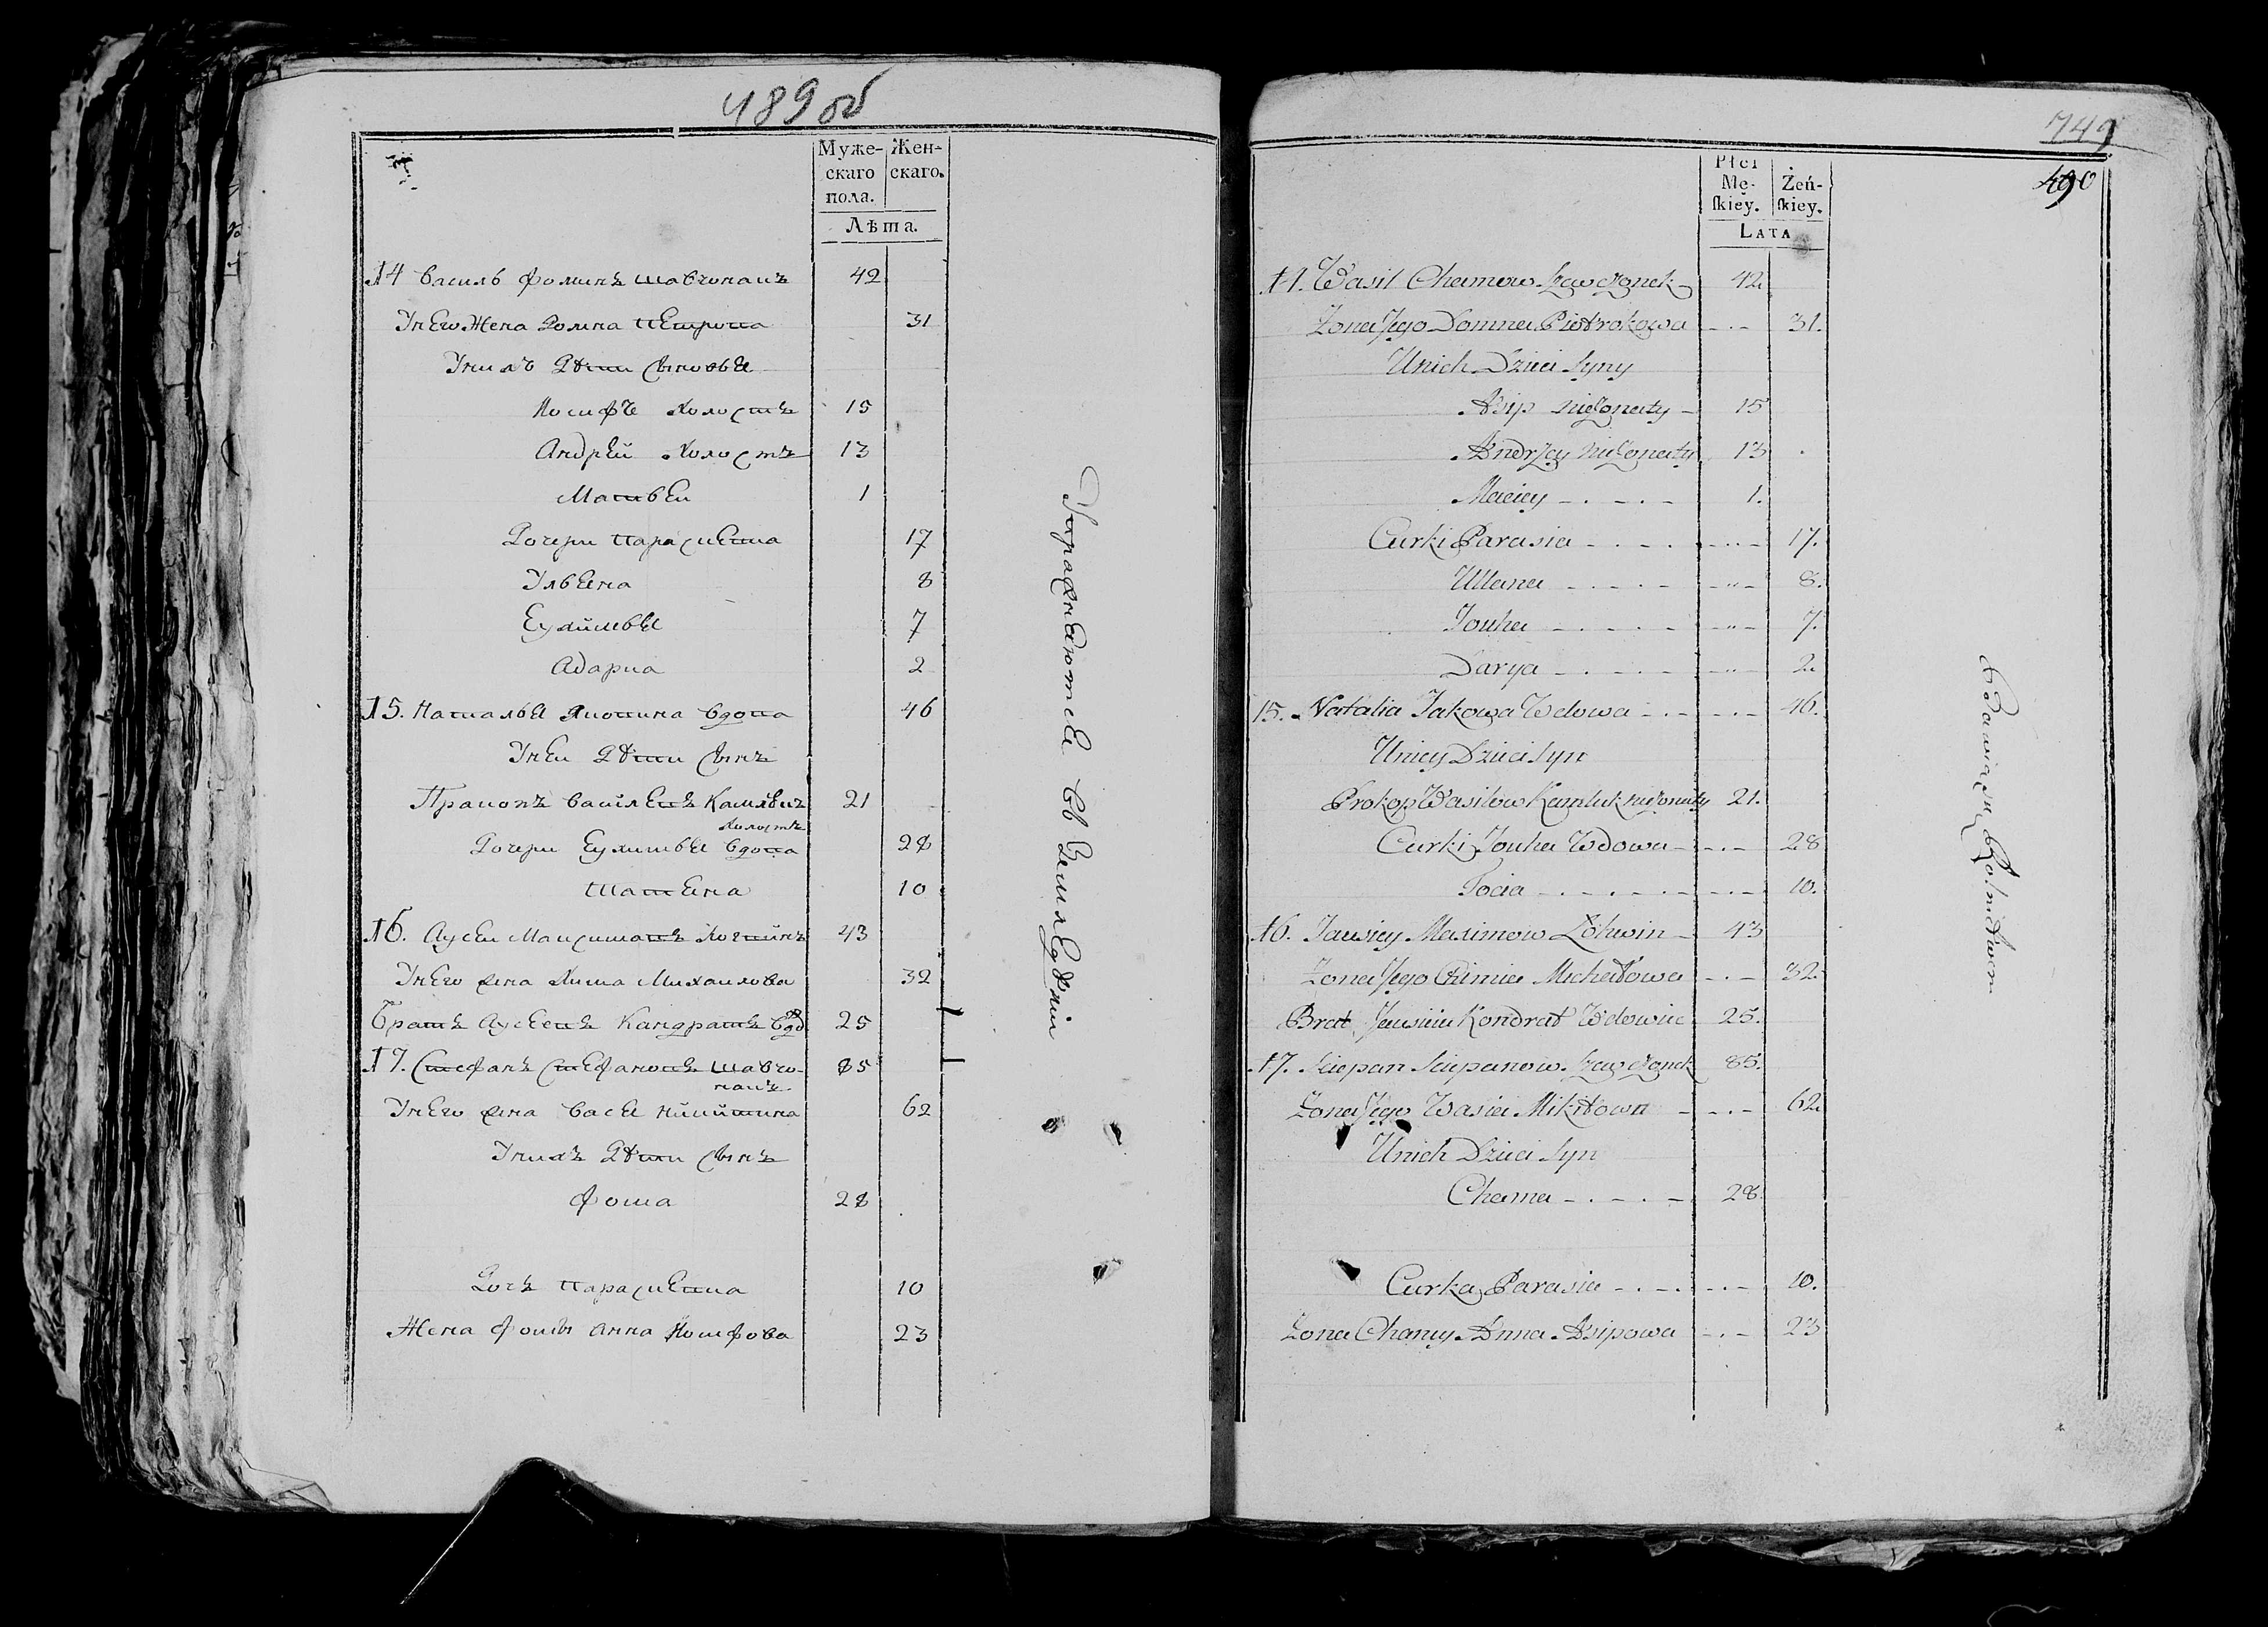 489 об
Муже-
скаго
пола.
Жен-
скаго.
Лѣта.
14 Василь Фоминъ Шавчонакъ 42
Унего Жена Домна Петрова 31
Унихъ Дѣти Сыновья
Иосифъ Холостъ 15
Андрей Холостъ 13
Матвей 1
Дочери Параскета 17
Ульяна 8
Еухимья 7
Адарка 2
15. Наталья Яковина вдова 46
Уней Дѣти Сынъ
Пракопъ Васілевъ Камлюкъ 21
Холостъ
Дочери Еухимья вдова 28
Татьяна 10
16. Аусей Максимавъ Логвинъ 43
Унего жена Хима Михаилова 32
Братъ Аусеевъ Кандратъ вдо 25
17. Стефанъ Стефановъ Шавчо- 85
накъ
Унего жена Вася Никитина 62
Унихъ Дѣти Сынъ
Фома 28
Дочь Параскета 10
Жена Фомы Анна Иосифова 23
Упражняются въ Земледѣлии
749
490
Płci
Mę-
ſkiey.
Żeń-
ſkiey.
LATA
14. Wasil Chamow Szawczonek 42.
Zona Jego Domna Piotrokowa 31.
Unich Dzieci Syny
Asip nieżonaty 15
Andrzey nieżonaty 13
Maciey 1.
Curki Parasia 17.
Ullana 8.
Jouha 7.
Darya 2.
15. Natalia Jakowa Wdowa 46.
Uniey Dzieci Syn
Prokop Wasilow Kamluk nieżonaty 21.
Curki Jouha Wdowa 28
Tocia 10.
16. Jausiey Maximow Łohwin 43
Zona Jego Chimia Michałowa 32.
Brat Jausieia Kondrat Wdowiec 25.
17. Sciepan Sciepanow Szawczonek 85.
Zona Jego Wasia Mikitowa 62.
Unich Dzieci Syn
Chama 28.
Curka Parasia 10.
Zona Chamy Anna Asipowa 23